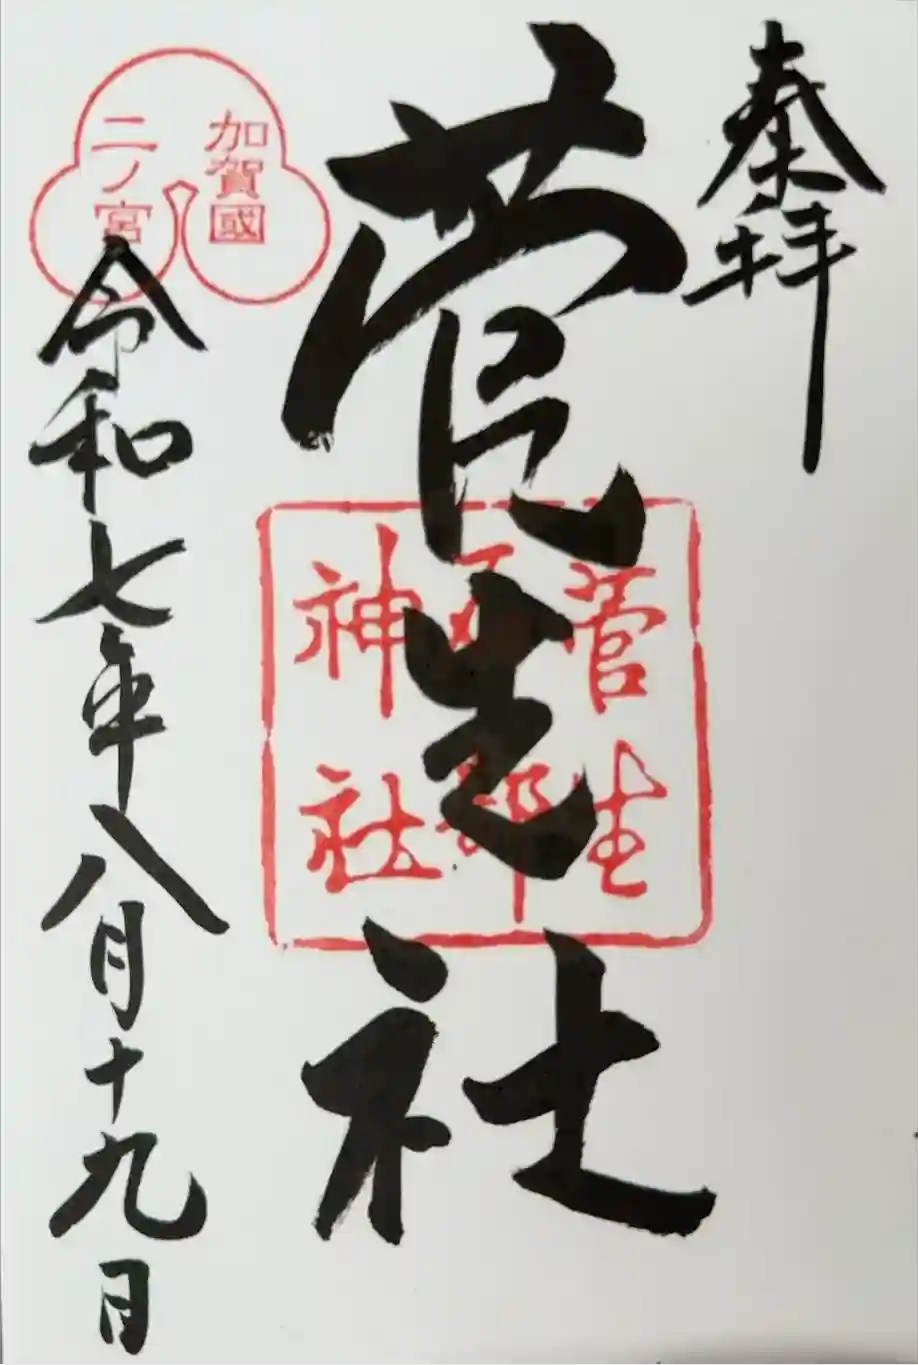 奉拝
菅生社
菅生
石部
神社
加賀國
二ノ宮
令和七年八月十九日